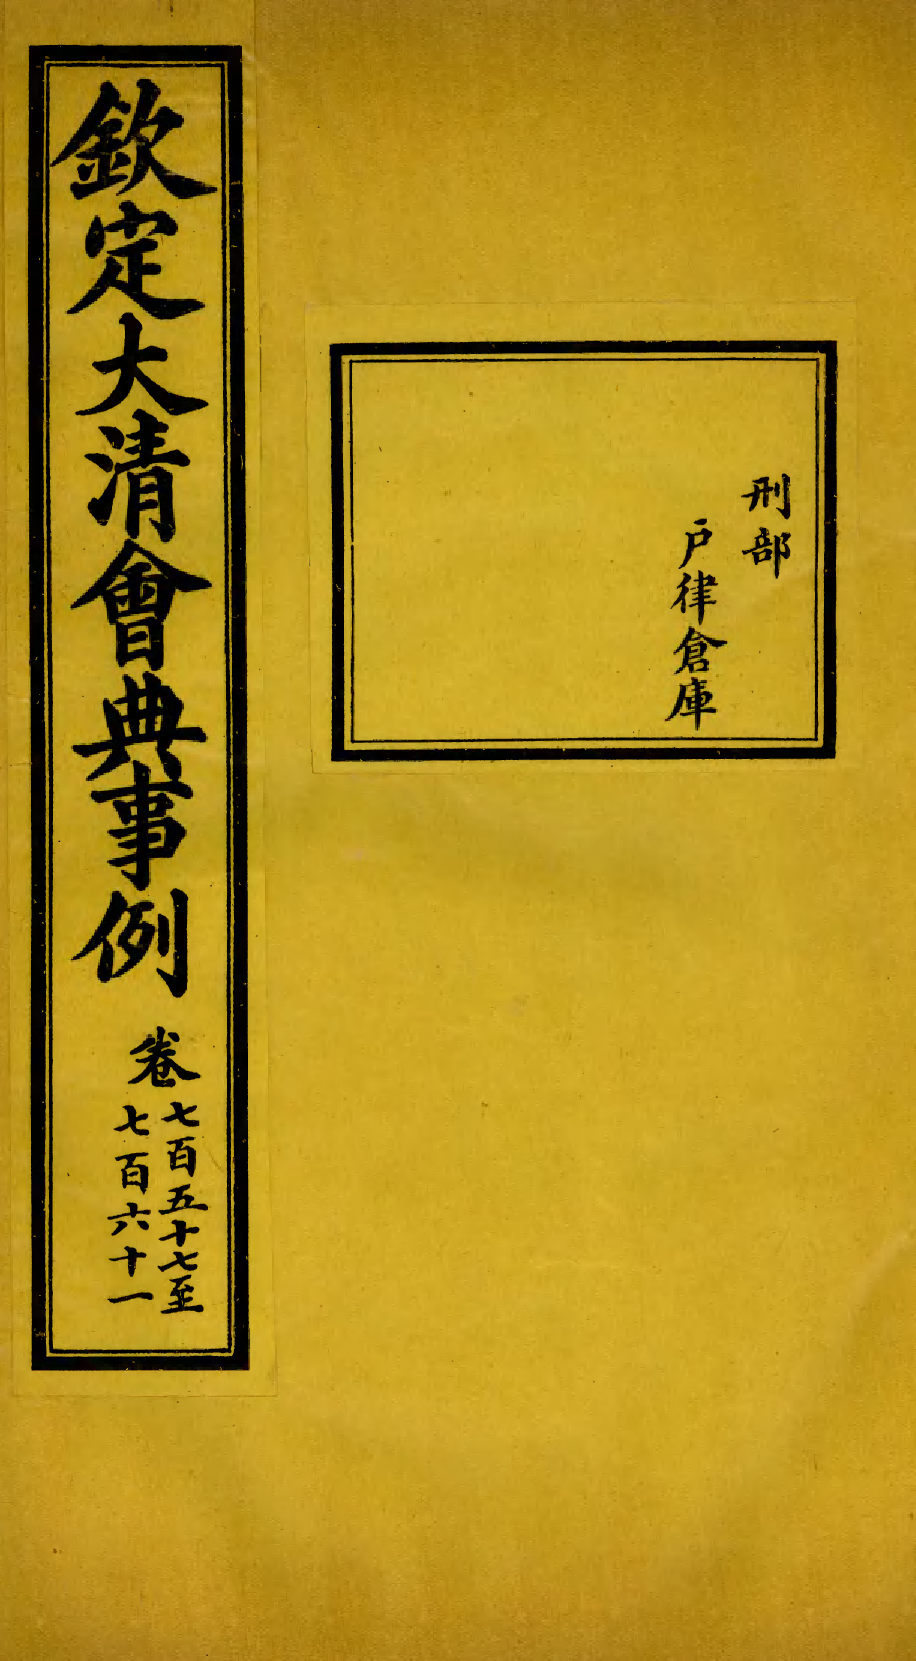 刑部
戶律倉庫
欽定大清會典事例
卷七百五十七至
七百六十一